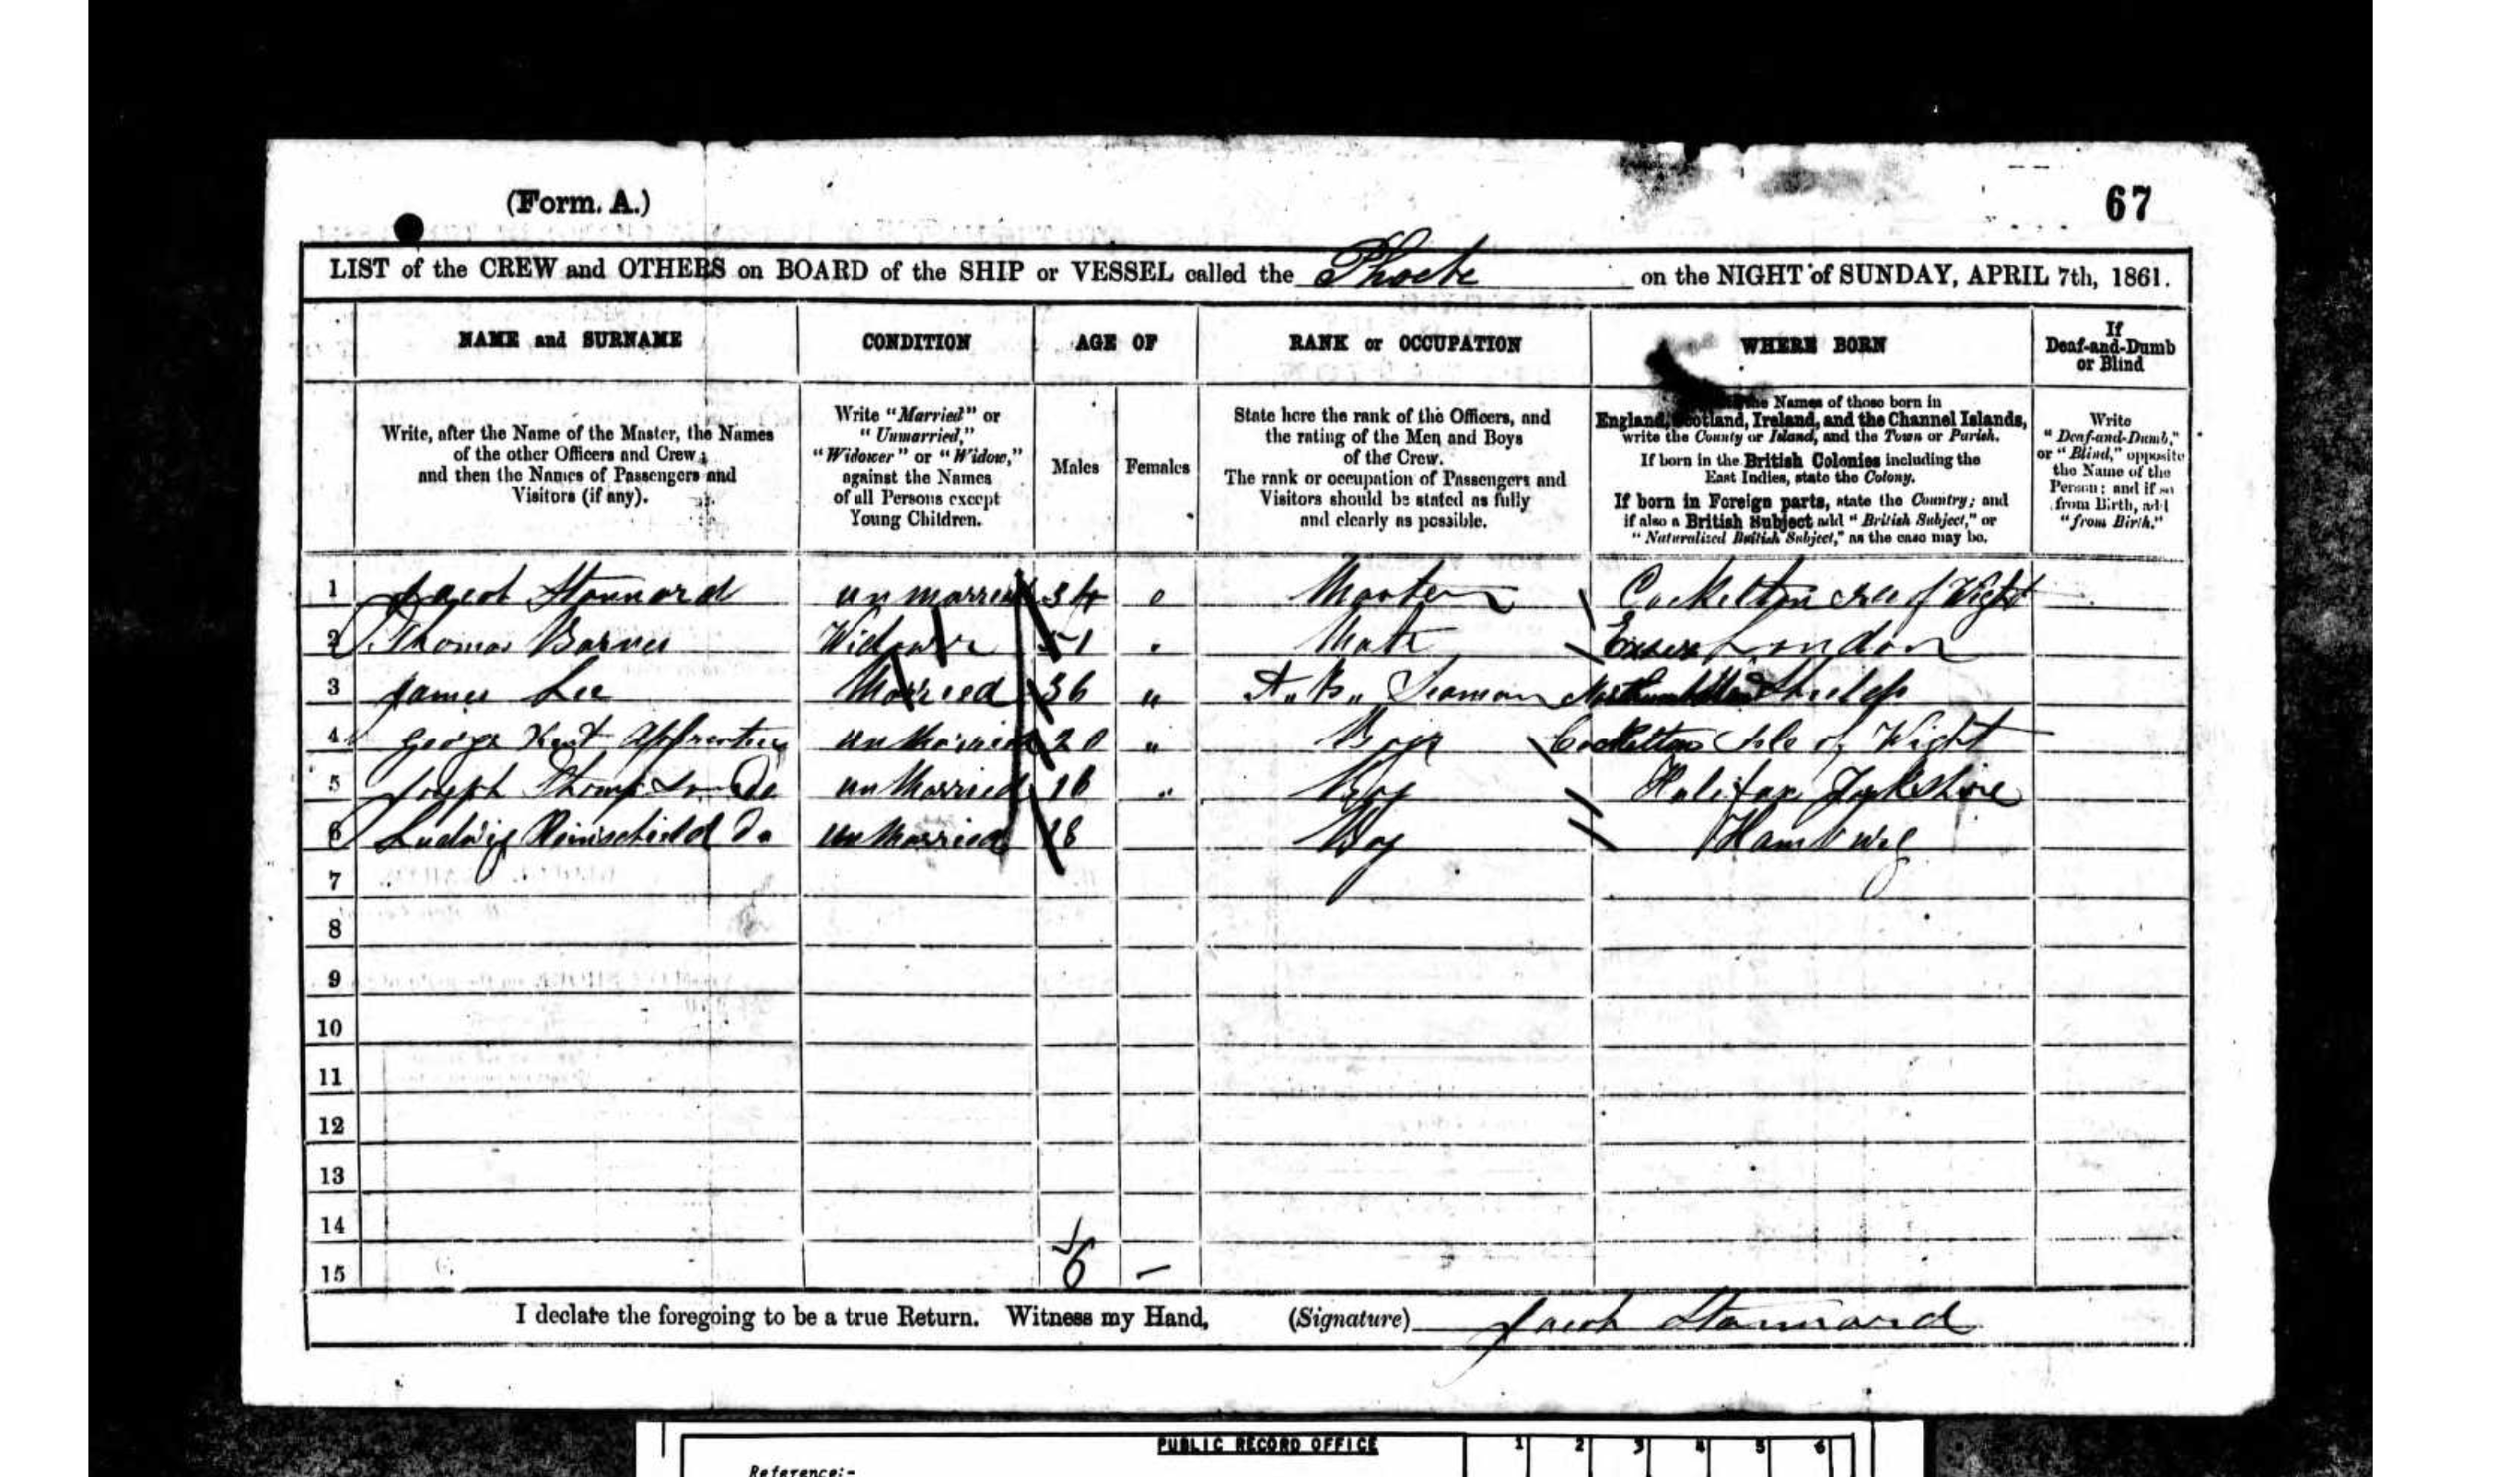 (Form. A.)
67
LIST of the CREW and OTHERS on BOARD of the SHIP or VESSEL called the Phoebe on the NIGHT of SUNDAY, APRIL 7th, 1861.
NAME and SURNAME
CONDITION
AGE OF
RANK or OCCUPATION
WHERE BORN
If
Deaf-and-Dumb
or Blind
Write, after the Name of the Master, the Names
of the other Officers and Crew;
and then the Names of Passengers and
Visitors (if any).
Write "Married" or
"Unmarried,"
"Widower" or "Widow,"
against the Names
of all Persons except
Young Children.
Males
Females
State here the rank of the Officers, and
the rating of the Men and Boys
of the Crew.
The rank or occupation of Passengers and
Visitors should be stated as fully
and clearly as possible.
the Names of those born in
England, Scotland, Ireland, and the Channel Islands,
write the County or Island, and the Town or Parish.
If born in the British Colonies including the
East Indies, state the Colony.
If born in Foreign parts, state the Country; and
if also a British Subject add "British Subject," or
"Naturalized British Subject," as the case may be.
Write
"Deaf-and-Dumb,"
or "Blind," opposite
the Name of the
Person; and if so
from Birth, add
"from Birth."
1 Jacob Stannard unmarried 34 Master Isle of Wight
2 Thomas Barnes Widower 51 Mate London
3 James Lee Married 36 A. B. Seaman Shields
4 George Kent Apprentice unMarried 20 Boy Isle of Wight
5 Joseph Thompson Do unMarried 18 Boy Halifax Yorkshire
6 Ludwig Reinschield Do unMarried 18 Boy Hamburg
7
8
9
10
11
12
13
14
15
6 –
I declare the foregoing to be a true Return. Witness my Hand, (Signature) Jacob Stannard
PUBLIC RECORD OFFICE 1 2 3 4 5 6
Reference:-